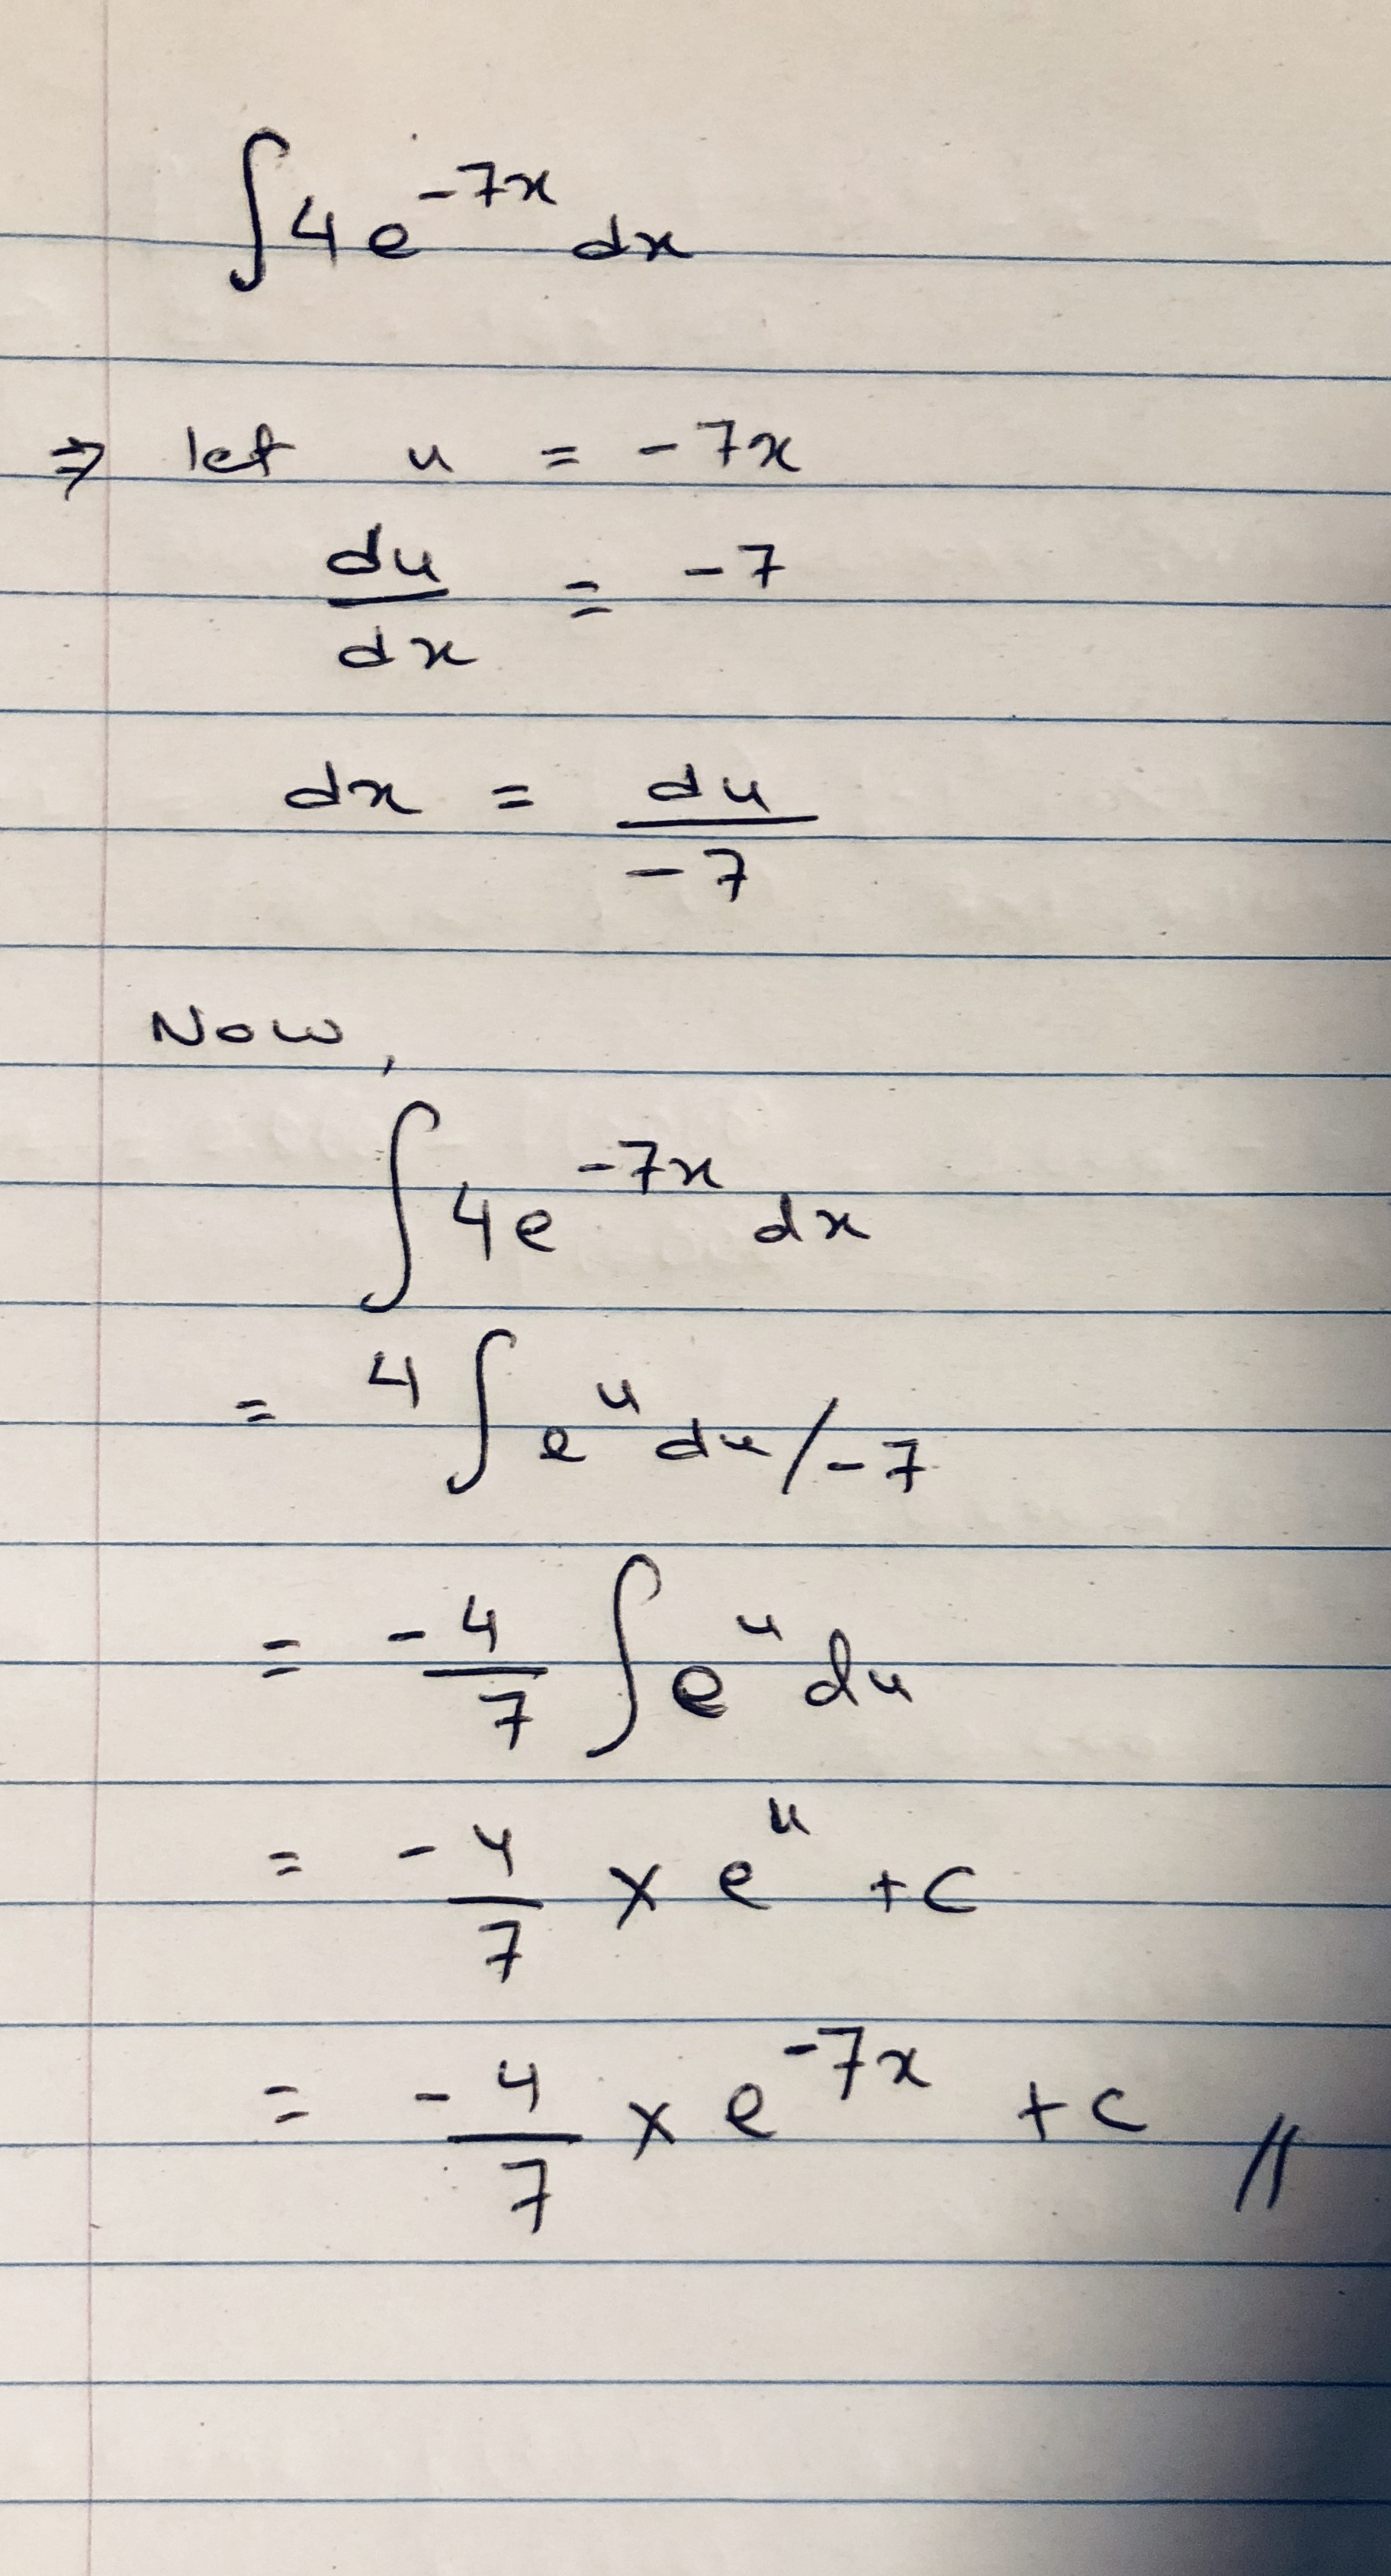 ∫4e^{-7x} dx
⇒ let u = -7x
du/dx = -7
dx = du/-7
Now,
∫4e^{-7x} dx
= 4∫e^u du/-7
= -4/7 ∫e^u du
= -4/7 × e^u + c
= -4/7 × e^{-7x} + c //